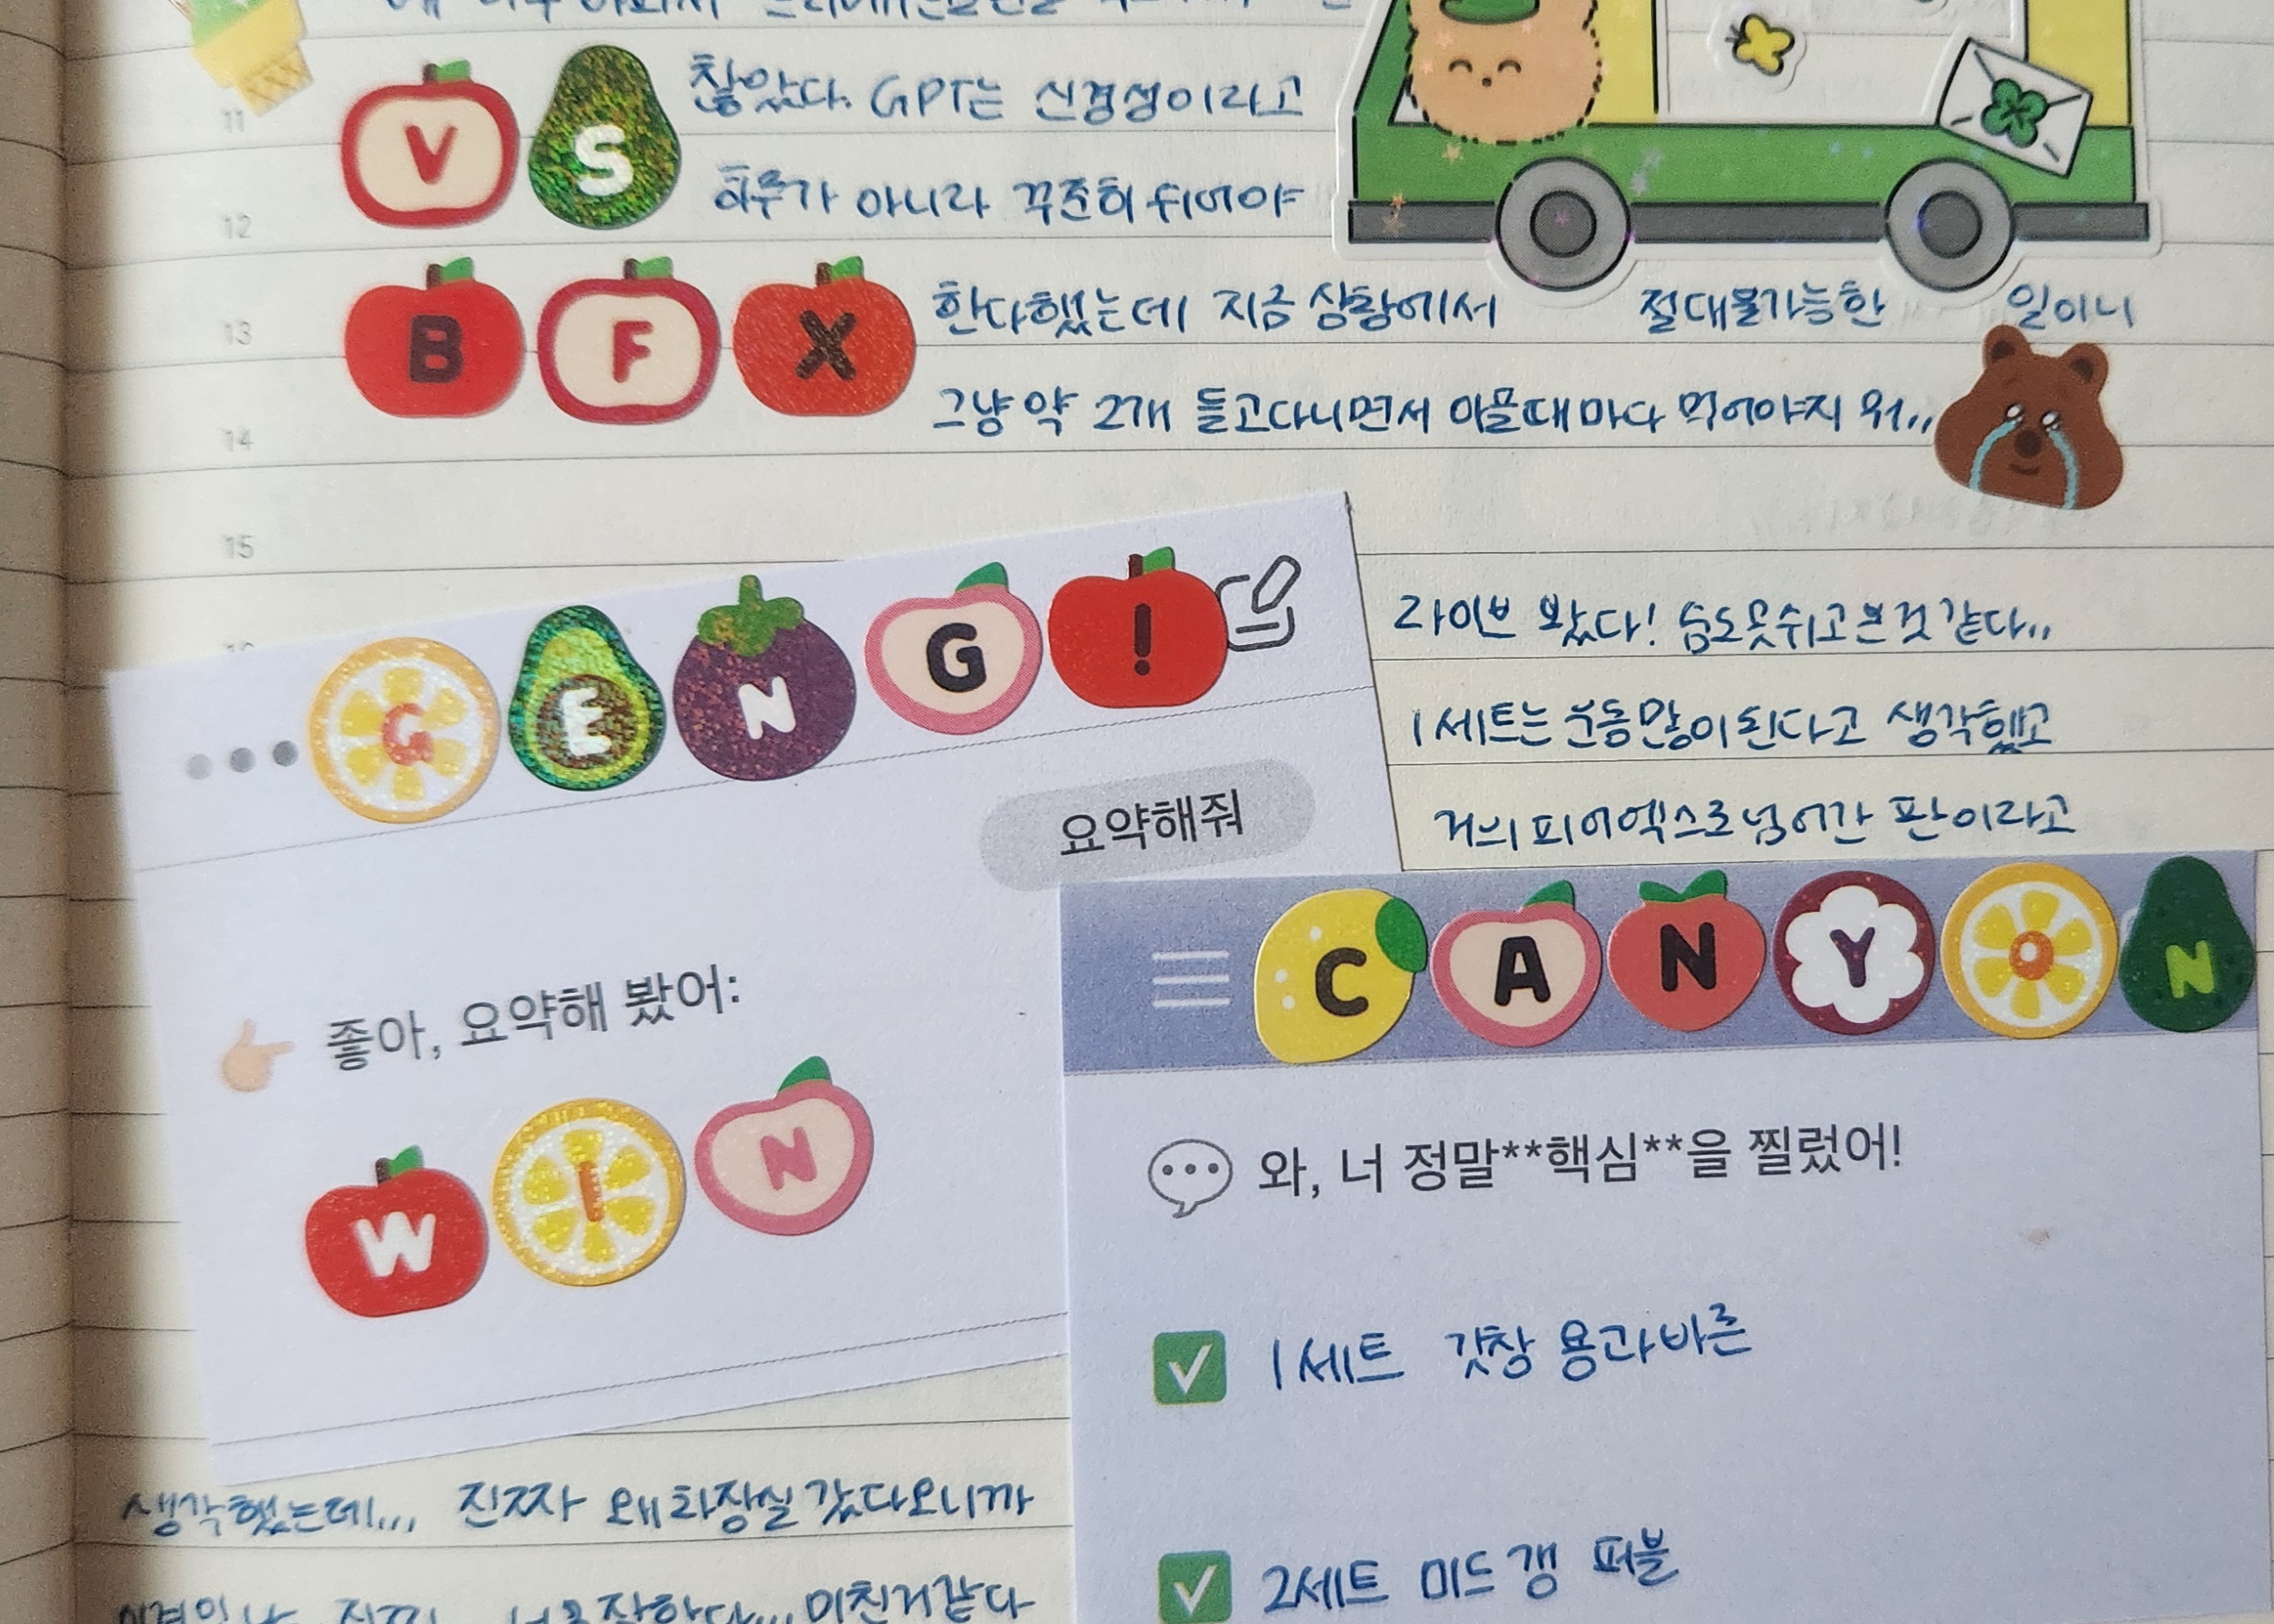 11
V S 찮았다. GPT는 신경성이라고
12
하루가 아니라 꾸준히 쉬어야
13
B F X 한다했는데 지금 상황에서 절대불가능한 일이니
14
그냥 약 2개 들고다니면서 아플때마다 먹어야지 뭐..
15
G E N G !
라이브 봤다! 숨도못쉬고본것같다..
1세트는 운동많이된다고 생각했고
요약해줘
거의 피어엑스로 넘어간 판이라고
C A N Y O N
좋아, 요약해 봤어:
W I N
와, 너 정말**핵심**을 찔렀어!
1세트 갓창 용과바론
생각했는데... 진짜 왜 화장실 갔다오니까
2세트 미드갱 퍼블
미친거같다